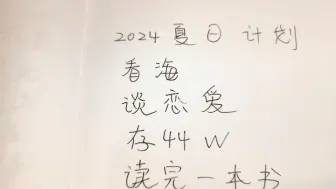 2024 夏日计划
看海
谈恋爱
存44W
读完一本书